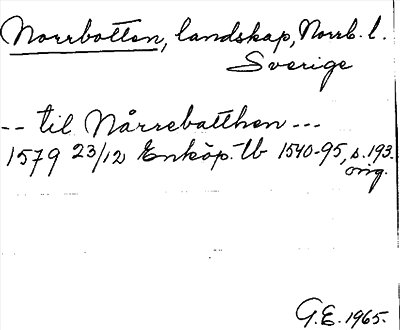 Norrbotten, landskap, Norrb. l.
Sverige
-- til Nårrebatthen ---
1579 23/12 Enköp. tb 1540-95, s. 193.
orig.
G.E. 1965.